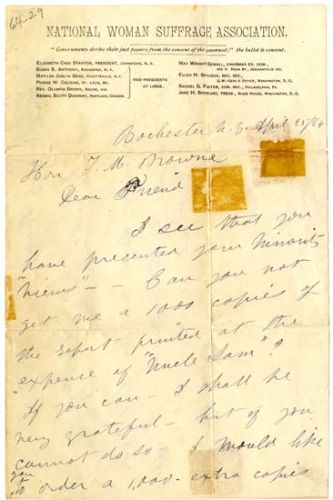 64-29
NATIONAL WOMAN SUFFRAGE ASSOCIATION.
"Governments derive their just powers from the consent of the governed;" the ballot is consent.
ELIZABETH CADY STANTON, PRESIDENT, JOHNSTOWN, N.Y.
SUSAN B. ANTHONY, ROCHESTER, N.Y.
MATILDA JOSLYN GAGE, FAYETTEVILLE, N.Y.
PHOEBE W. COUZINS, ST. LOUIS, MO.
REV. OLYMPIA BROWN, RACINE, WIS.
ABIGAIL SCOTT DUNIWAY, PORTLAND, OREGON.
VICE-PRESIDENTS
AT LARGE.
MAY WRIGHT SEWALL, CHAIRMAN EX. COM.,
INDIANAPOLIS IND.
ELLEN H. SHELDON, REC. SEC.,
OFFICE, WASHINGTON, D.C.
RACHEL G. FOSTER, COR. SEC., PHILADELPHIA, PA.
JANE H. SPOFFORD, TREAS., RIGGS HOUSE, WASHINGTON, D.C.
Rochester N.Y. April /84
Hon T. M. Browne
Dear Friend
I see that you
have presented your minority
"Views" — Can you not
get me a 1000 copies of
the report printed at the
expense of "Uncle Sam"?
If you can — I shall be
very grateful — but if you
cannot do so — I would like
you
to order a 1,000 extra copies